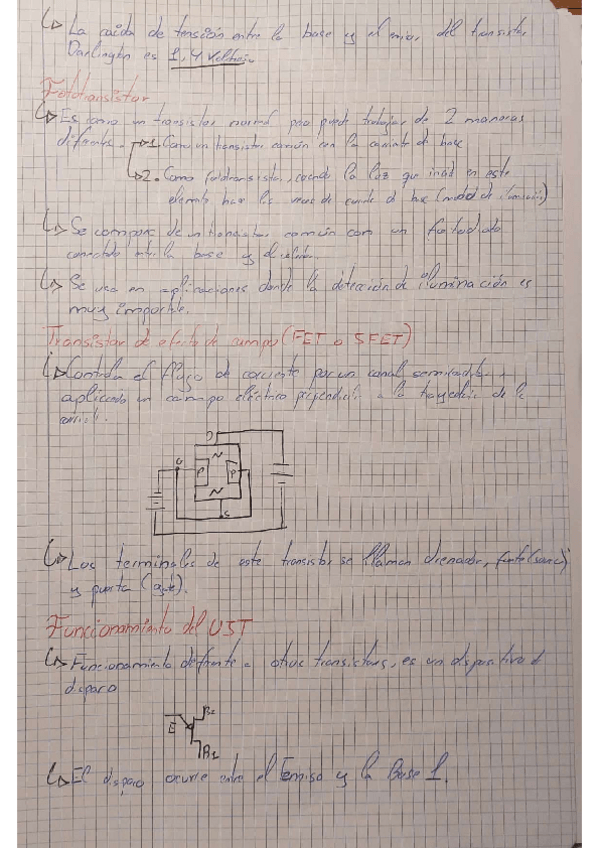 La caida de tensión entre la base y el emisor del transistor
Darlington es 1,4 voltios
Fototransistor
Es como un transistor normal pero puede trabajar de 2 maneras
diferentes. 1. Como un transistor común con la corriente de base
2. Como fototransistor, cuando la luz que incide en este
elemento hace las veces de corriente de base
Se compone de un transistor común con un fotodiodo
conectado entre la base y el
Se usa en aplicaciones donde la detección de iluminación es
muy importante.
Transistor de efecto de campo (FET o SFET)
Controla el flujo de corriente por un canal semiconductor
aplicando un campo eléctrico perpendicular a la trayectoria de la
corriente.
D
G N
P P
N
S
Los terminales de este transistor se llaman drenador, fuente (source)
y puerta (gate).
Funcionamiento del UST
Funcionamiento diferente a otros transistores, es un dispositivo de
disparo
B2
E
B1
El disparo ocurre entre el Emisor y la Base 1.